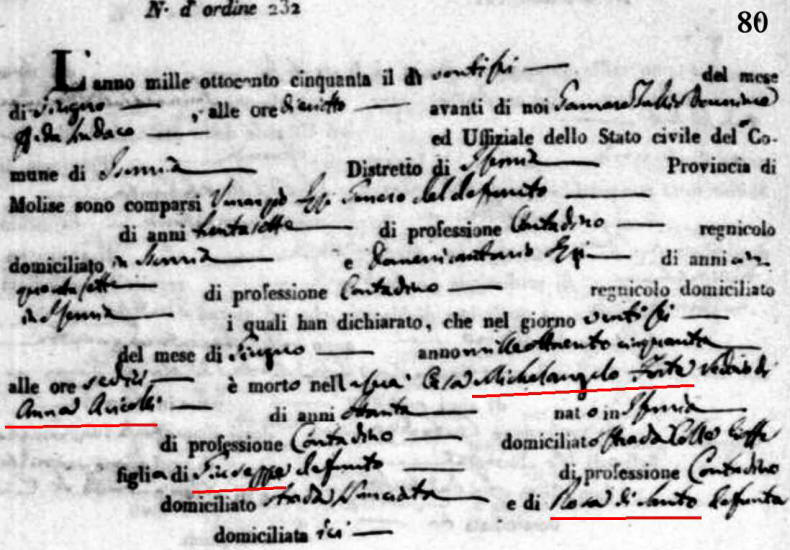 N. d'ordine 232
80
L'anno mille ottocento cinquanta il dì ventisei del mese
di Giugno, alle ore diciotto avanti di noi
ff. da Sindaco ed Uffiziale dello Stato civile del Co-
mune di Isernia Distretto di Isernia Provincia di
Molise sono comparsi Epi Genero del defunto
di anni trentasette di professione Contadino regnicolo
domiciliato in Isernia e Domenicantonio Epi di anni cin
quantasette di professione Contadino regnicolo domiciliato
in Isernia i quali han dichiarato, che nel giorno ventisei
del mese di Giugno anno milleottocento cinquanta
alle ore sedici è morto nella sua Casa Michelangelo Forte vedovo di
Anna Aricolli di anni ottanta nato in Isernia
di professione Contadino domiciliato strada
figlio di Giuseppe defunto di professione Contadino
domiciliato strada e di Rosa di Santo defunta
domiciliata ivi